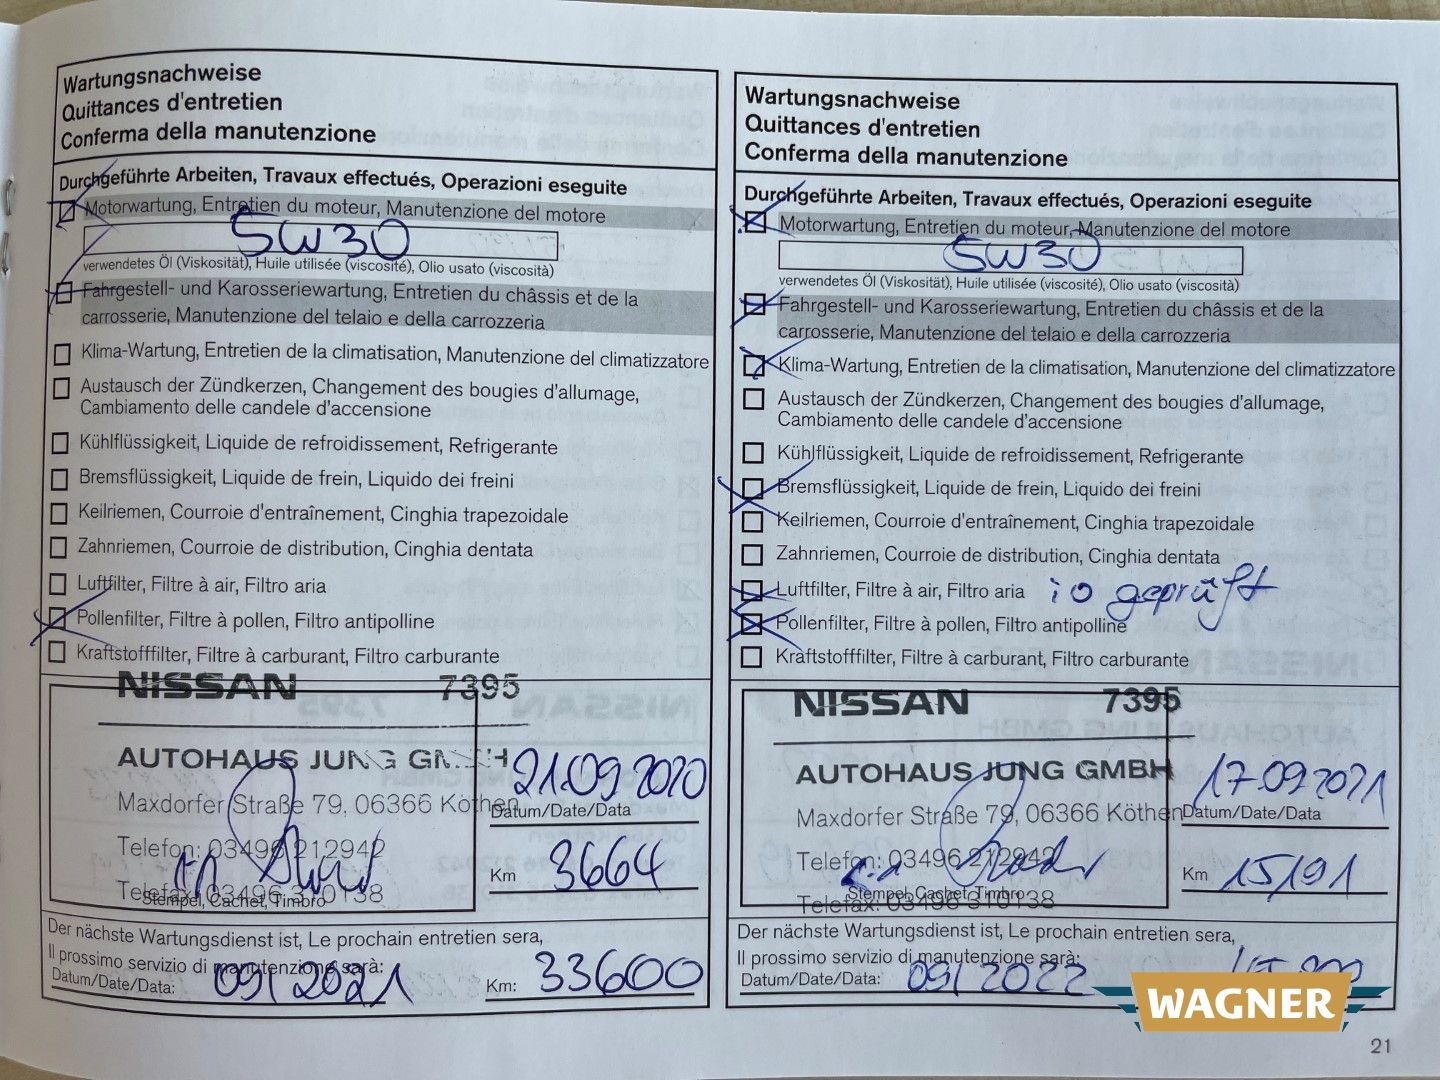 Wartungsnachweise
Quittances d'entretien
Conferma della manutenzione
Durchgeführte Arbeiten, Travaux effectués, Operazioni eseguite
Motorwartung, Entretien du moteur, Manutenzione del motore
5W30
verwendetes Öl (Viskosität), Huile utilisée (viscosité), Olio usato (viscosità)
Fahrgestell- und Karosseriewartung, Entretien du châssis et de la
carrosserie, Manutenzione del telaio e della carrozzeria
Klima-Wartung, Entretien de la climatisation, Manutenzione del climatizzatore
Austausch der Zündkerzen, Changement des bougies d'allumage,
Cambiamento delle candele d'accensione
Kühlflüssigkeit, Liquide de refroidissement, Refrigerante
Bremsflüssigkeit, Liquide de frein, Liquido dei freini
Keilriemen, Courroie d'entraînement, Cinghia trapezoidale
Zahnriemen, Courroie de distribution, Cinghia dentata
Luftfilter, Filtre à air, Filtro aria
Pollenfilter, Filtre à pollen, Filtro antipolline
Kraftstofffilter, Filtre à carburant, Filtro carburante
NISSAN 7395
AUTOHAUS JUNG GMBH
Maxdorfer Straße 79, 06366 Köthen
21.09.2020
Datum/Date/Data
Telefon: 03496 212942
Km 3664
Telefax: 03496 310138
Stempel, Cachet, Timbro
Der nächste Wartungsdienst ist, Le prochain entretien sera,
Il prossimo servizio di manutenzione sarà:
Datum/Date/Data: 09/2021 Km: 33600
Wartungsnachweise
Quittances d'entretien
Conferma della manutenzione
Durchgeführte Arbeiten, Travaux effectués, Operazioni eseguite
Motorwartung, Entretien du moteur, Manutenzione del motore
5W30
verwendetes Öl (Viskosität), Huile utilisée (viscosité), Olio usato (viscosità)
Fahrgestell- und Karosseriewartung, Entretien du châssis et de la
carrosserie, Manutenzione del telaio e della carrozzeria
Klima-Wartung, Entretien de la climatisation, Manutenzione del climatizzatore
Austausch der Zündkerzen, Changement des bougies d'allumage,
Cambiamento delle candele d'accensione
Kühlflüssigkeit, Liquide de refroidissement, Refrigerante
Bremsflüssigkeit, Liquide de frein, Liquido dei freini
Keilriemen, Courroie d'entraînement, Cinghia trapezoidale
Zahnriemen, Courroie de distribution, Cinghia dentata
Luftfilter, Filtre à air, Filtro aria io geprüft
Pollenfilter, Filtre à pollen, Filtro antipolline
Kraftstofffilter, Filtre à carburant, Filtro carburante
NISSAN 7395
AUTOHAUS JUNG GMBH
Maxdorfer Straße 79, 06366 Köthen
17.09.2021
Datum/Date/Data
Telefon: 03496 212942
Km 15191
Telefax: 03496 310138
Stempel, Cachet, Timbro
Der nächste Wartungsdienst ist, Le prochain entretien sera,
Il prossimo servizio di manutenzione sarà:
Datum/Date/Data: 09/2022
WAGNER
21